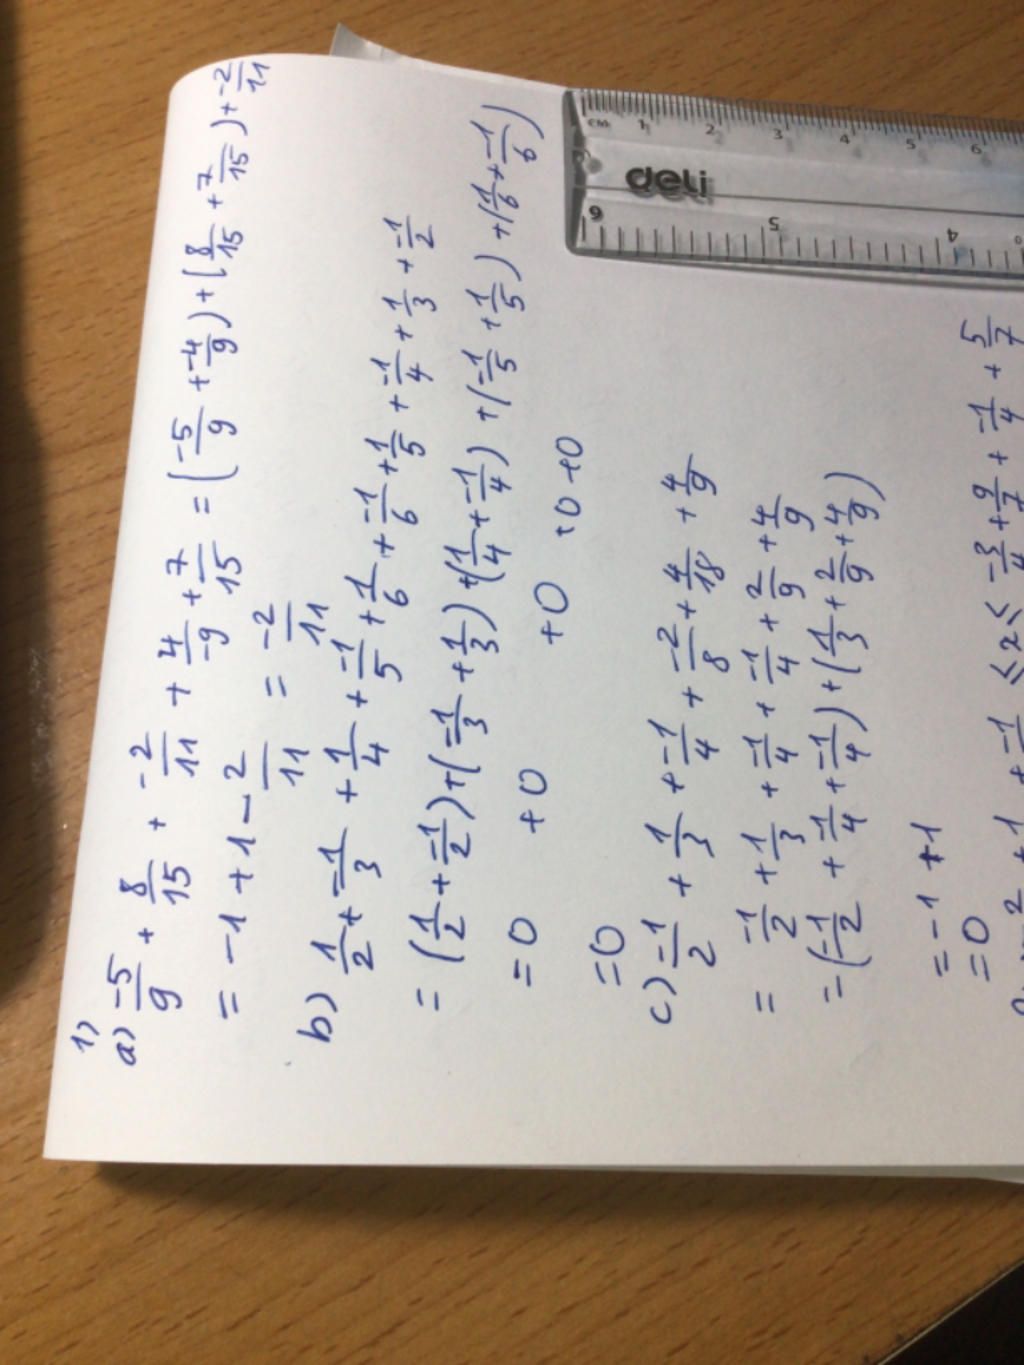 1)
a) -5/9 + 8/15 + -2/11 + 4/-9 + 7/15 = (-5/9 + -4/9) + (8/15 + 7/15) + -2/11
= -1 + 1 - 2/11 = -2/11
b) 1/2 + -1/3 + 1/4 + -1/5 + 1/6 + -1/6 + 1/5 + -1/4 + 1/3 + -1/2
= (1/2 + -1/2) + (-1/3 + 1/3) + (1/4 + -1/4) + (-1/5 + 1/5) + (1/6 + -1/6)
= 0 + 0 + 0 + 0 + 0
= 0
c) -1/2 + 1/3 + -1/4 + -2/8 + 4/18 + 4/9
= -1/2 + 1/3 + -1/4 + -1/4 + 2/9 + 4/9
= (-1/2 + -1/4 + -1/4) + (1/3 + 2/9 + 4/9)
= -1 + 1
= 0
≤ x ≤ -3/4 + 9/7 + -1/4 + 5/7
deli
cm 1 2 3 4 5 6
6 5 4